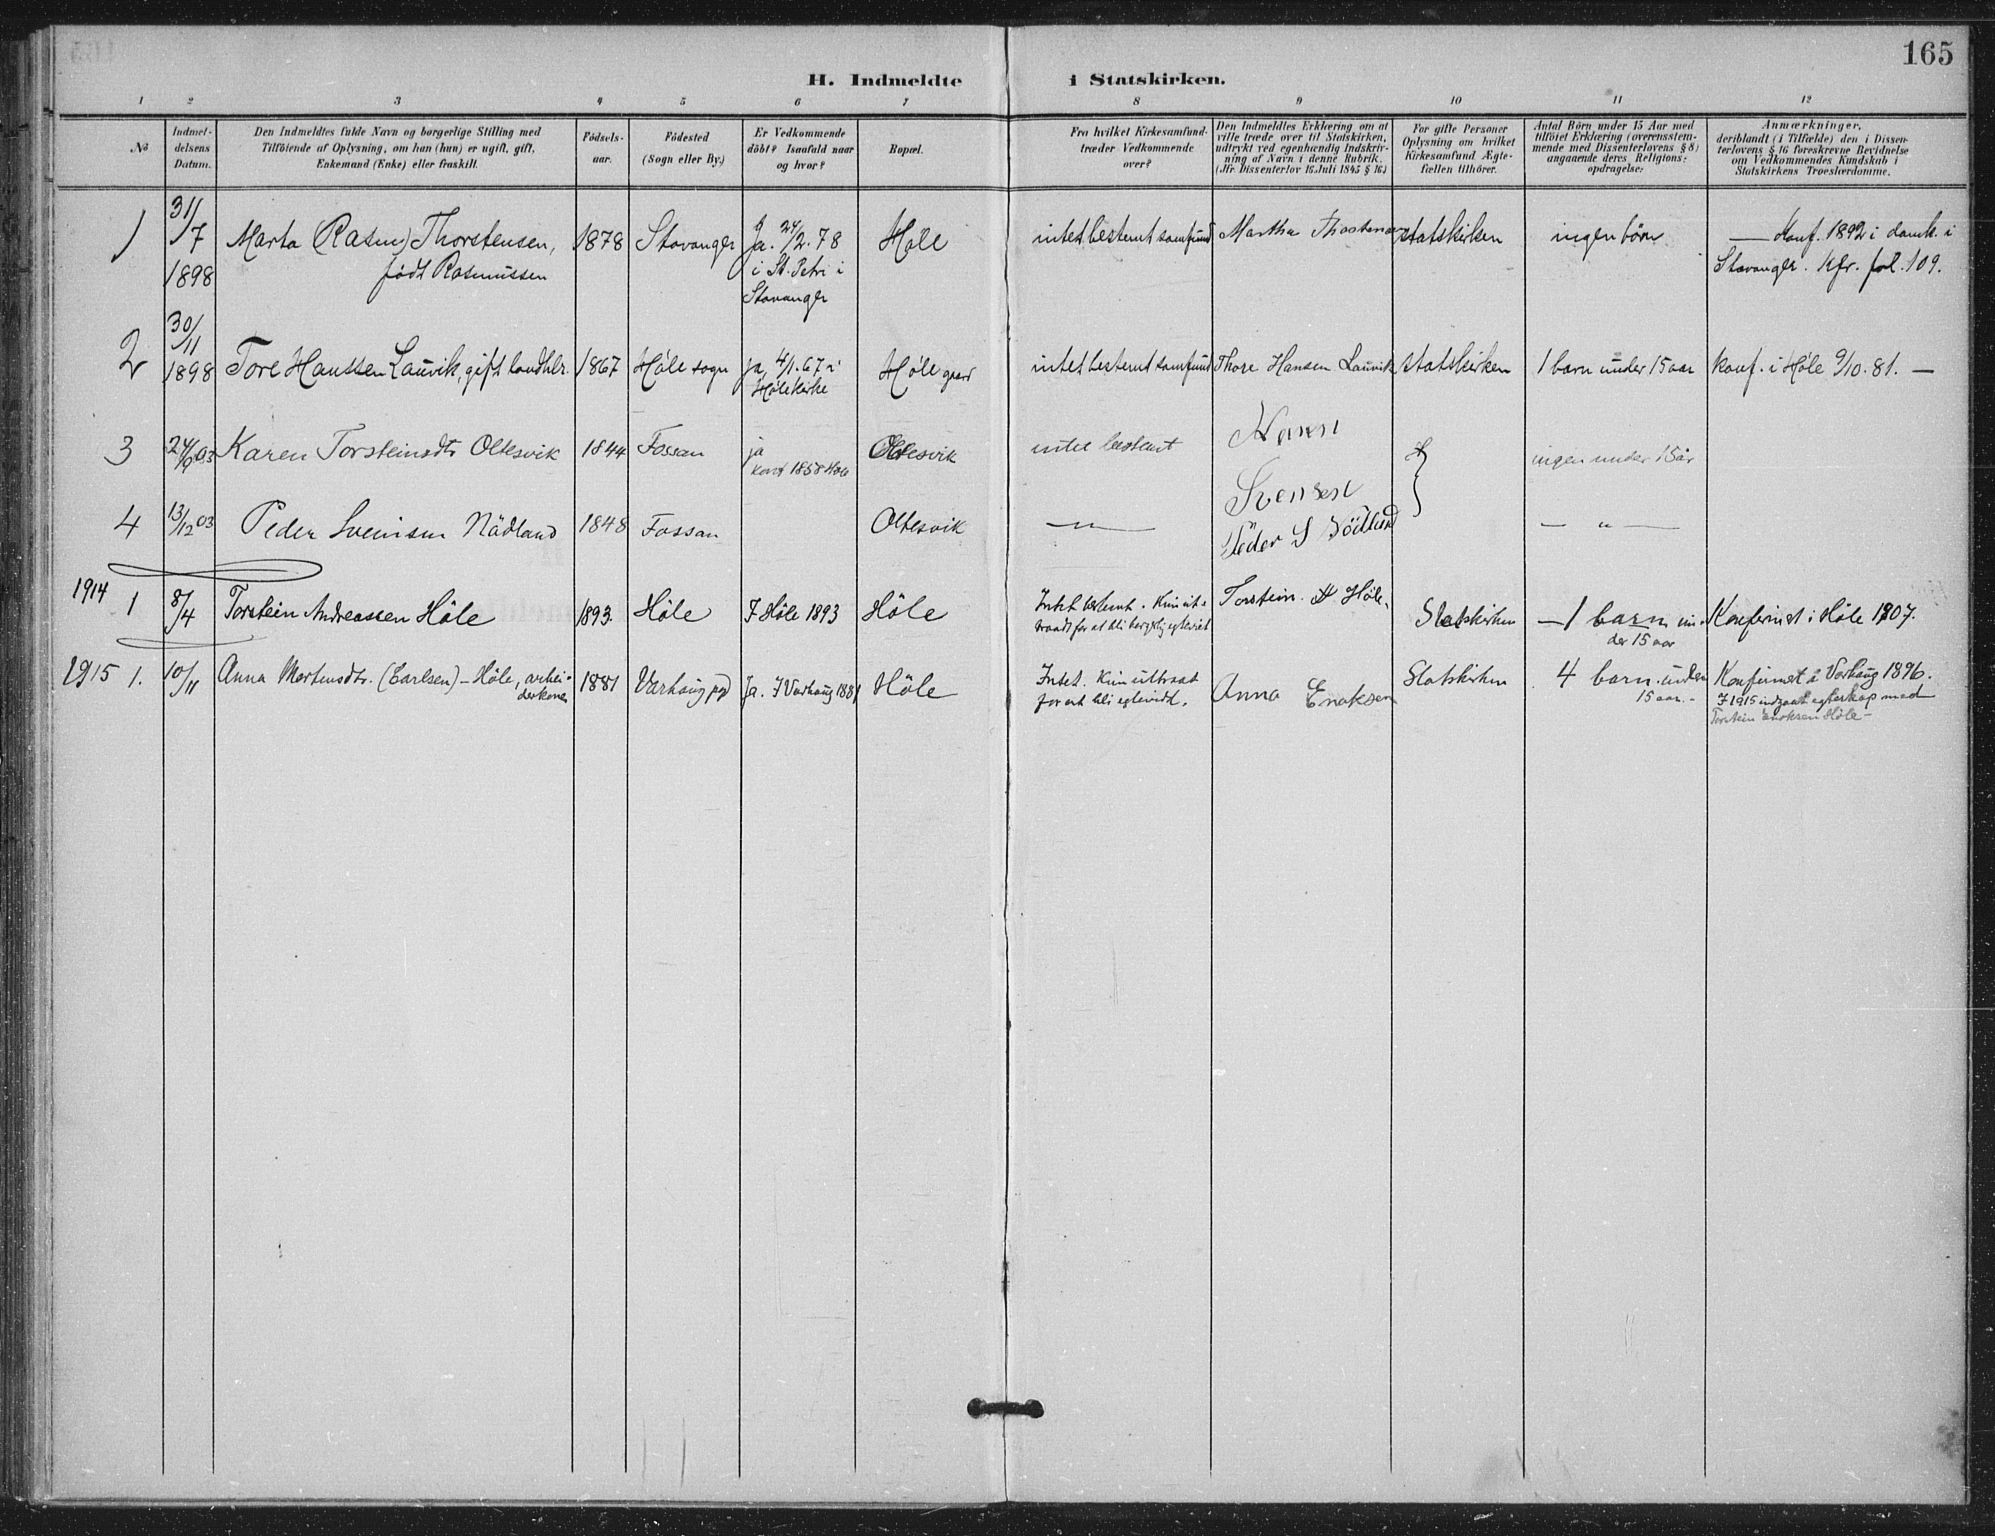 165
H. Indmeldte i Statskirken.
1 2 3 4 5 6 7 8 9 10 11 12
No
Indmel-
delsens
Datum.
Den Indmeldtes fulde Navn og borgerlige Stilling med
Tilföiende af Oplysning, om han (hun) er ugift, gift,
Enkemand (Enke) eller fraskilt.
Födsels-
aar.
Födested
(Sogn eller By.)
Er Vedkommende
döbt? Isaafald naar
og hvor?
Bopæl.
Fra hvilket Kirkesamfund
træder Vedkommende
over?
Den Indmeldtes Erklæring om at
ville træde over til Statskirken,
udtrykt ved egenhændig Indskriv-
ning af Navn i denne Rubrik.
(Jfr. Dissenterlov 16 Juli 1845 § 16.)
For gifte Personer
Oplysning om hvilket
Kirkesamfund Ægte-
fællen tilhörer.
Antal Börn under 15 Aar med
tilföiet Erklæring (overensstem-
mende med Dissenterlovens § 8)
angaaende deres Religions-
opdragelse.
Anmærkninger,
deriblandt (i Tilfælde) den i Dissen-
terlovens § 16 foreskrevne Bevidnelse
om Vedkommendes Kundskab i
Statskirkens Troeslærdomme.
1
31/7
1898
Marta (Rasm) Thorstensen,
født Rasmussen
1878
Stavanger
Ja. 24/2. 78
i St. Petri i
Stavanger
Høle
intet bestemt samfund
Martha Thorstensen
statskirken
ingen børn
— Konf. 1892 i domk. i
Stavanger. Kfr. fol. 109.
2
30/11
1898
Tore Hanssen Lauvik, gift landhlr.
1867
Høle sogn
ja, 4/1. 67 i
Høle kirke
Høle gaard
intet bestemt samfund
Thore Hansen Lauvik
statskirken
1 barn under 15 aar
konf. i Høle 9/10. 81. —
3
24/9 03
Karen Torsteinsdtr Oltesvik
1844
Fossan
ja
konf 1858 Høle
Oltesvik
intet bestemt
Svensen
ingen under 15 år
4
13/12 03
Peder Sveinsen Nådland
1848
Fossan
Oltesvik
— " —
Peder S Nödland
— " —
1914
1
8/4
Torstein Andreassen Höle
1893.
Höle
I Höle 1893
Höle
Intet bestemt. Kun ut-
traadt for at bli borgerlig egteviet
Torstein A Höle.
Statskirken
— 1 barn un-
der 15 aar
Konfirmert i Höle 1907.
1915
1.
10/11
Anna Mortensdtr. (Carlsen) - Höle, arbei-
derkone
1881
Varhaug pgd
Ja. I Varhaug 1881
Höle
Intet. Kun uttraat
for at bli egteviet.
Anna Enoksen
Statskirken
4 barn under
15 aar. -
Konfirmert i Varhaug 1896.
I 1915 indgaaet egteskap med
Torstein Enoksen Höle -